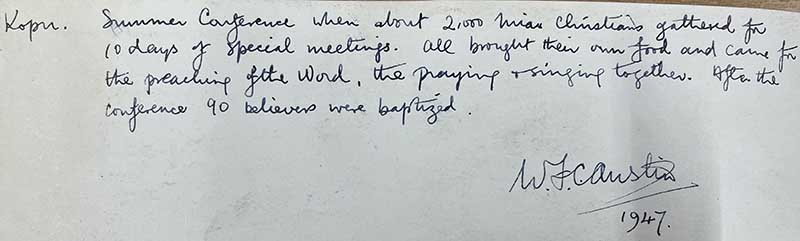 Kopu. Summer Conference when about 2,000 Miao Christians gathered for
10 days of special meetings. All brought their own food and came for
the preaching of the Word, the praying & singing together. After the
conference 90 believers were baptized.
1947.